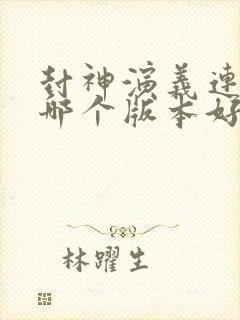 封神演義連
哪个版本好
林躍生